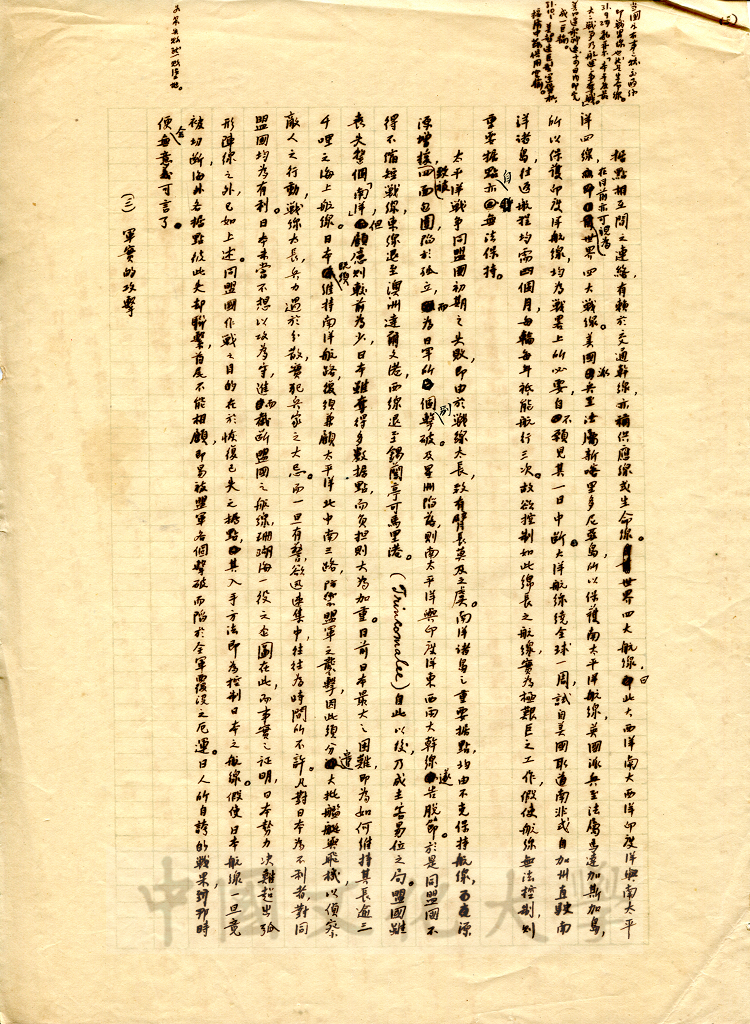 (5)
據點相互間之連絡,有賴於交通幹線,亦稱供應線或生命線。世界四大航線,曰北大西洋南大西洋印度洋與南太平
洋四線,在目前亦可視為世界四大戰線。美國派兵至法屬新喀里多尼亞島,所以保護南太平洋航線,英國派兵至法屬馬達加斯加島,
所以保護印度洋航線,均為戰畧上所必要,自不親見其一日中斷。大洋航線繞全球一周,試自美國取道南非或自加州直駛南
洋諸島,往返航程均需四個月,每輪每年祇能航行三次。故欲控制如此綿長之航線,實為極艱巨之工作,假使航線無法控制,則
重要據點亦自無法保持。
太平洋戰爭同盟國初期之失敗,即由於戰線太長,故有臂長莫及之虞。南洋諸島之重要據點,均由不克保持航線,而
源增援,致被四面包圍陷於孤立,而為日軍所個別擊破。及星洲陷落,則南太平洋與印度洋東西兩大幹線遂告脫節。於是同盟國不
得不縮短戰線,東線退至澳洲達爾文港,西線退至錫蘭亭可馬里港。(Trinkomalee)自此以後,乃成主客易位之局。盟國雖
喪失整個「南洋」,但顧慮則較前為少,日本雖奪得多數據點,而負担則大為加重。目前日本最大之困難,即為如何維持其長逾三
千哩之海上航線。日本既須維持南洋航路,復須兼顧太平洋北中南三路,防禦盟軍之襲擊,因此須分遣大批艦艇與飛機以偵察
敵人之行動,戰線太長,兵力過於分散,實犯兵家之大忌。而一旦有警,欲迅速集中,往往為時間所不許。凡對日本為不利者,對同
盟國均為有利。日本未嘗不想以攻為守,進而截斷盟國之航線,珊瑚海一役之企圖在此,而事實之證明,日本勢力決難超出弧
形陣線之外,已如上述。同盟國作戰之目的在於恢復已失之據點,其入手方法即為控制日本之航線。假使日本航線一旦竟
被切斷,海外各據點彼此失卻聯繫,首尾不能相顧,即易被盟軍各個擊破而陷於全軍覆沒之厄運。日人所自誇的戰果,到那時
便全無意義可言了。
(三)軍實的攻擊
中國文化大學